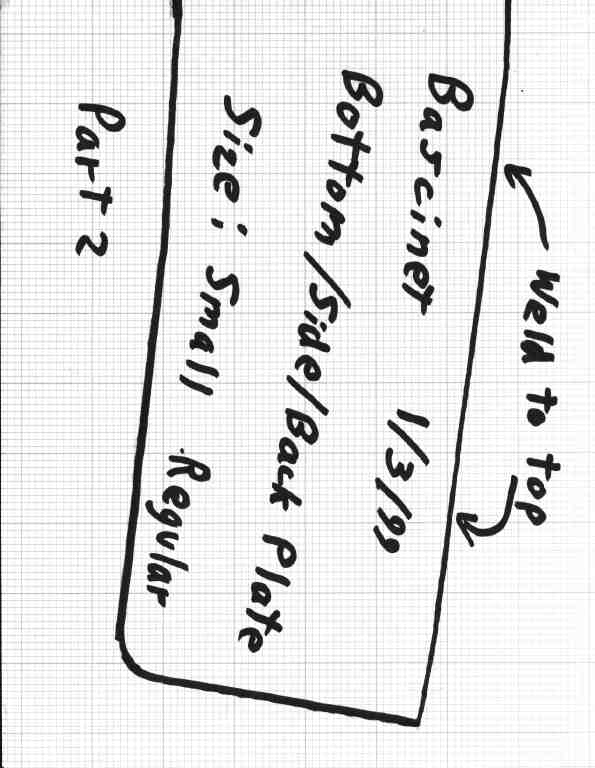 Weld to top
Bascinet 1/3/99
Bottom/Side/Back Plate
Size: Small Regular
Part 2